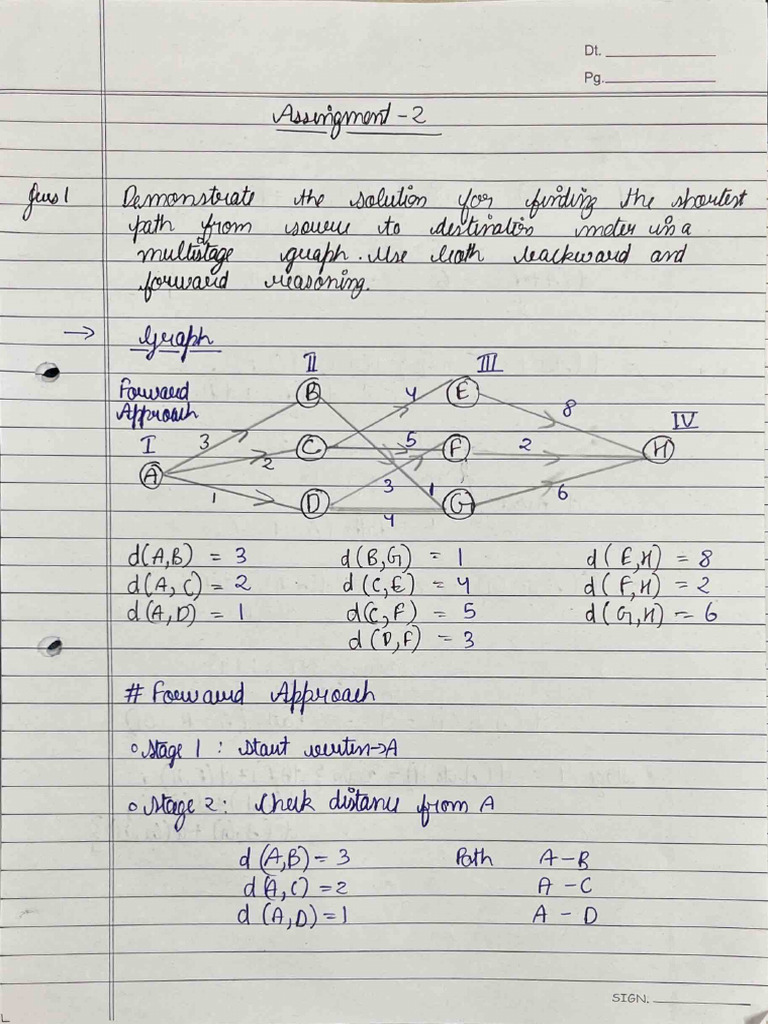 Dt.
Pg.
Assingment - 2
Ques 1 Demonstrate the solution for finding the shortest
path from source to destination in a
multistage graph. Use both backward and
forward reasoning.
→ Graph
II III
Forward
Approach
B 4 E 8
IV
I 3 C 5 F 2 H
A 2
1 D 3 1 G 6
4
d(A,B) = 3 d(B,G) = 1 d(E,H) = 8
d(A,C) = 2 d(C,E) = 4 d(F,H) = 2
d(A,D) = 1 d(C,F) = 5 d(G,H) = 6
d(D,F) = 3
# Forward Approach
Stage 1 : Start vertex→A
Stage 2 : Check distance from A
d(A,B) = 3 Path A - B
d(A,C) = 2 A - C
d(A,D) = 1 A - D
SIGN.